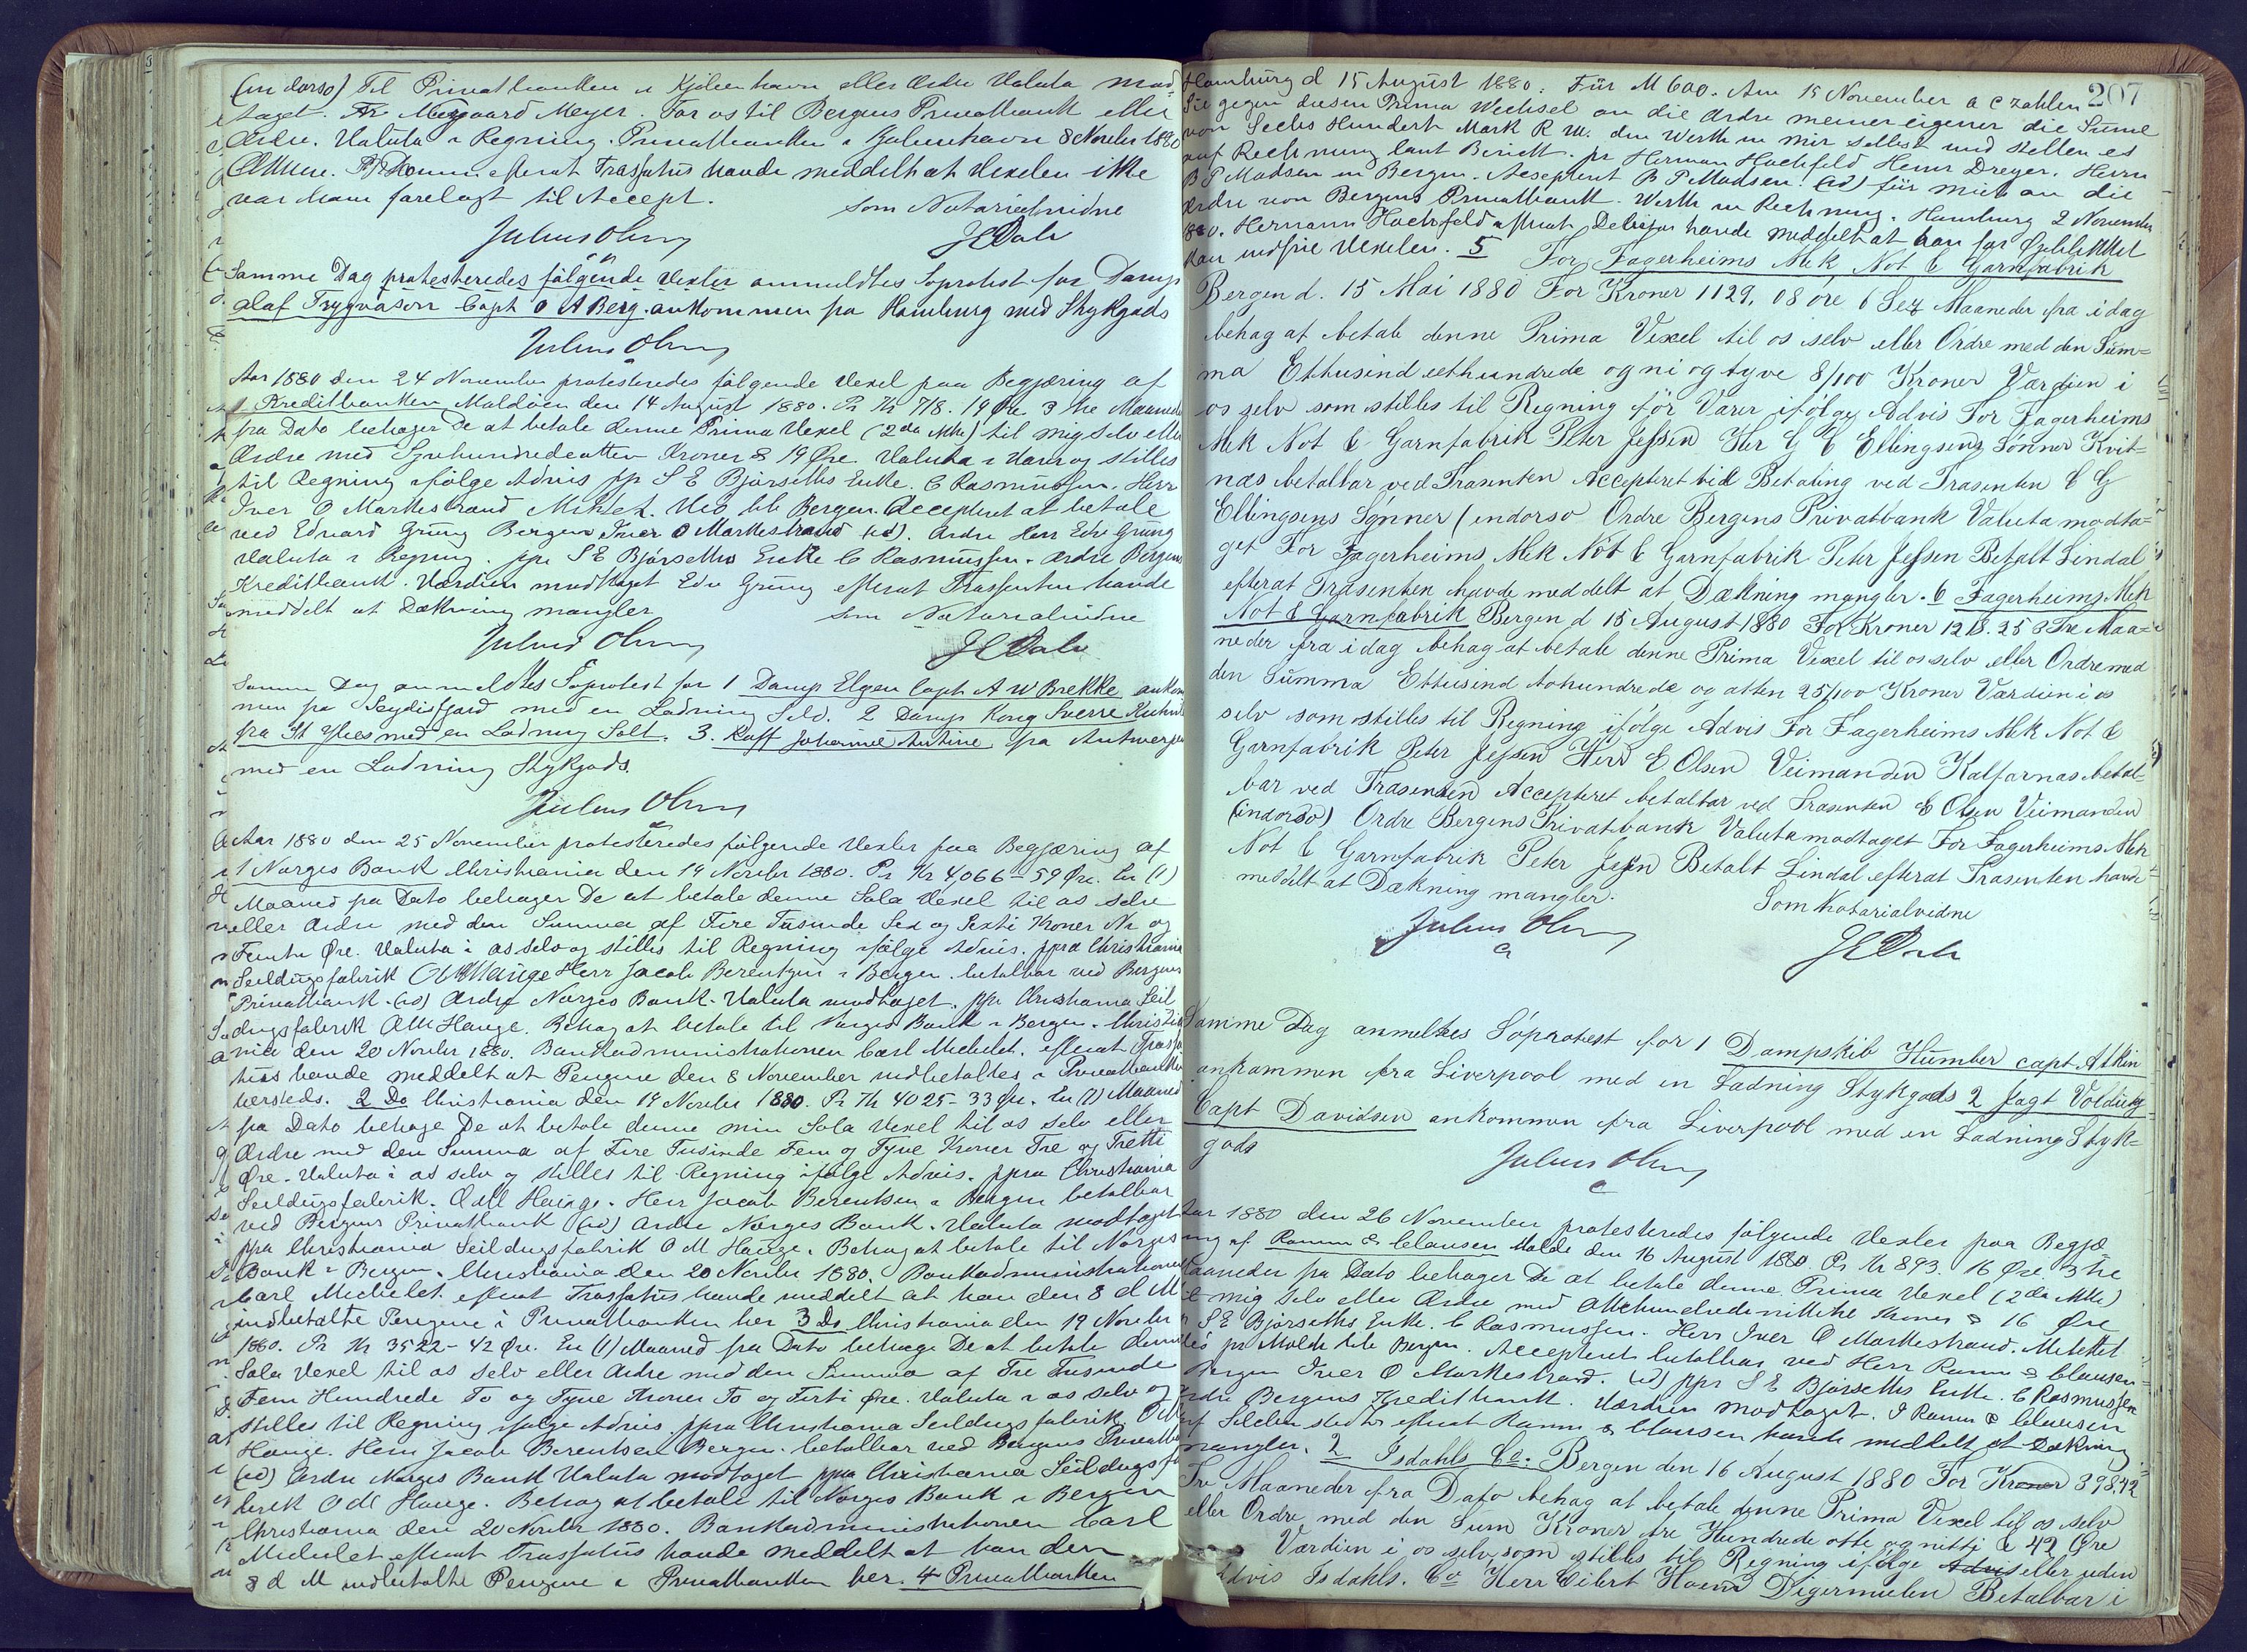 (in dorso) Til Privatbanken i Kjøbenhavn eller Ordre Valuta mod-
taget. Meyer. For os til Bergens Privatbank eller
Ordre. Valuta i Regning. Privatbanken i Kjøbenhavn 8 Novbr 1880
efterat Trassatus havde meddelt at Vexelen ikke
var ham forelagt til Accept. som Notarialvidne
Julius Olsen JEDale
Samme Dag protesteredes følgende Vexler anmeldtes Søprotest for Damps
Olaf Trygvason Capt O A Berg ankommen fra Hamburg med Stykgods
Julius Olsen
Aar 1880 den 24 November protesteredes følgende Vexel paa Begjæring af
1 Kreditbanken Maldøen den 14 August 1880. Pr Kr 718. 19 Øre 3 tre Maaneder
fra Dato behager De at betale denne Prima Vexel (2da ikke) til mig selv eller
Ordre med Syvhundredeatten Kroner & 19 Øre. Valuta i Varer og stilles
til Regning ifølge Advis pp S E Bjørseths Enke. C Rasmussen. Herr
Iver O Markestrand Bergen. Accepteret at betale
ved Edvard Grüng Bergen Iver O Markestrand (id). Ordre Herr Edv Grüng
Valuta i Regning. ppr S E Bjørseths Enke C Rasmussen. Ordre Bergens
Kreditbank. Værdien modtaget Edv Grüng efterat Trassenten havde
meddelt at Dækning mangler som Notarialvidne
Julius Olsen JEDale
Samme Dag anmeldtes Søprotest for 1 Damp Elgen Capt A W Brekke ankom
men fra Seydisfjord med en Ladning Sild. 2 Damps Kong Sverre
fra St Ybes med en Ladning Salt. 3. Kuff Johanne Antine fra Antwerpen
med en Ladning Stykgods.
Julius Olsen
Aar 1880 den 25 November protesteredes følgende Vexler paa Begjæring af
1 Norges Bank Christiania den 19 Novbr 1880. Pr Kr 4,066 - 59 Øre. En (1)
Maaned fra Dato behager De at betale denne Sola Vexel til os selv
eller Ordre med den Summa af Fire Tusinde Sex og Sexti Kroner Ni og
Femti Øre. Valuta i os selv og stilles til Regning ifølge Advis. ppra Christiania
Seildugsfabrik O M Hauge Herr Jacob Berentsen i Bergen. betalbar ved Bergens
Privatbank. (id) Ordre Norges Bank. Valuta modtaget. ppa Christiania Seil
dugsfabrik O M Hauge. Behag at betale til Norges Bank i Bergen. Christia
nia den 20 Novbr 1880. Bankadministrationen Carl Michelet. efterat Trassa
tus havde meddelt at Pengene den 8 November indbetaltes i Privatbanken
hersteds. 2 Do Christiania den 19 Novbr 1880. Pr Kr 4025 - 33 Øre. En (1) Maaned
fra Dato behage De at betale denne min Sola Vexel til os selv eller
Ordre med den Summa af Fire Tusinde Fem og Tyve Kroner Tre og Tretti
Øre. Valuta i os selv og stilles til Regning ifølge Advis. ppra Christiania
Seildugsfabrik. O M Hauge. Herr Jacob Berentsen i Bergen betalbar
ved Bergens Privatbank (id) Ordre Norges Bank. Valuta modtaget
ppa Christiania Seildugsfabrik O M Hauge. Behag at betale til Norges
Bank i Bergen. Christiania den 20 Novbr 1880. Bankadministrationen
Carl Michelet. efterat Trassatus havde meddelt at han den 8 d M
indbetalte Pengene i Privatbanken her 3 Do Christiania den 19 Novbr
1880. Pr Kr 3522 - 42 Øre. En (1) Maaned fra Dato behage De at betale denne
Sola Vexel til os selv eller Ordre med den Summa af Tre Tusinde
Fem Hundrede To og Tyve Kroner To og Forti Øre. Valuta i os selv og
stilles til Regning ifølge Advis. ppra Christiania Seildugsfabrik O M
Hauge. Herr Jacob Berentsen Bergen. betalbar ved Bergens Privatba
(id) Ordre Norges Bank Valuta modtaget ppa Christiania Seildugsfa
brik O M Hauge. Behag at betale til Norges Bank i Bergen
Christiania den 20 Novbr 1880. Bankadministrationen Carl
Michelet efterat Trassatus havde meddelt at han den
8 d M indbetalte Pengene i Privatbanken her. 4 Privatbanken
207
Hamburg d 15 August 1880. Für M 600. Am 15 November a c zahlen
Sie gegen diesen Prima Wechsel an die Ordre meiner eigener die Sume
von Sechs Hundert Mark R W. den Werth in mir selbst und stellen es
auf Rechnung laut Bericht. pr Herman Hochfeld Henr Dreyer. Herrn
B P Madsen in Bergen. Acceptirt B P Madsen. (id) für mich an die
Ordre von Bergens Privatbank. Werth in Rechnung. Hamburg 2 November
1880. Hermann Hochfeld efterat Debitor havde meddelt at han for Øieblikket
kan indfrie Vexelen. 5 For Fagerheims Mek Not & Garnfabrik
Bergen d. 15 Mai 1880 For Kroner 1129, 08 øre 6 Sex Maaneder fra idag
behag at betale denne Prima Vexel til os selv eller Ordre med den Sum=
ma Ettusind etthundrede og ni og tyve 8/100 Kroner Værdien i
os selv som stilles til Regning før Varer ifølge Advis For Fagerheims
Mek Not & Garnfabrik Peter Jessen Herr G C Ellingsens Sønner Kvit=
næs betalbar ved Trasenten Accepteret til Betaling ved Trasenten C G
Ellingsens Sønner (indorso Ordre Bergens Privatbank Valuta modta=
get For Fagerheims Mek Not & Garnfabrik Peter Jessen Betalt Lindal
efterat Trasenten havde meddelt at Dækning mangler. 6 Fagerheims Mek
Not & Garnfabrik Bergen d 15 August 1880 For Kroner 1218. 25 3 Tre Maa=
neder fra idag behag at betale denne Prima Vexel til os selv eller Ordre med
den Summa Ettusind tohundrede og atten 25/100 Kroner Værdien i os
selv som stilles til Regning ifølge Advis For Fagerheims Mek Not &
Garnfabrik Peter Jessen Herr E Olsen Veimanden Kalfarnæs betal=
bar ved Trasenten Accepteret betalbar ved Trasenten E Olsen Veimanden
(indorso) Ordre Bergens Privatbank Valuta modtaget For Fagerheims Mek
Not & Garnfabrik Peter Jessen Betalt Lindal efterat Trasenten havde
meddelt at Dækning mangler. Som Notarialvidne
Julius Olsen JEDale
Samme Dag anmeldtes Søprotest for 1 Dampskib Humber capt Atkin
ankommen fra Liverpool med en Ladning Stykgods 2 Jagt Volding
Capt Davidsen ankommen fra Liverpool med en Ladning Styk=
gods
Julius Olsen
Aar 1880 den 26 November protesteredes følgende Vexler paa Begjæ
ring af Ramm & Clausen Molde den 16 August 1880. Pr Kr 893. 16 Øre. 3 tre
Maaneder fra Dato behager De at betale denne Prima Vexel (2da ikke)
til mig selv eller Ordre med Ottehundredenittitre Kroner & 16 Øre
S E Bjørseths Enke. C Rasmussen. Herr Iver O Markestrand.
pr Molde Bergen. Accepteret betalbar ved Herr Ramm & Clausen
Bergen Iver O Markestrand. (id) ppr S E Bjørseths Enke. C Rasmussen
Ordre Bergens Kreditbank. Værdien modtaget. Ramm & Clausen
efterat Ramm & Clausen havde meddelt at Dækning
mangler. 2 Isdahls Co: Bergen den 16 August 1880 For Kroner 398,42
Tre Maaneder fra Dato behag at betale denne Prima Vexel til os selv
eller Ordre med den Sum Kroner tre Hundrede otte og nitti & 42 Øre
Værdien i os selv, som stilles til Regning ifølge Advis eller uden
Advis Isdahls. Co Herr Eilert Digermulen Betalbar i